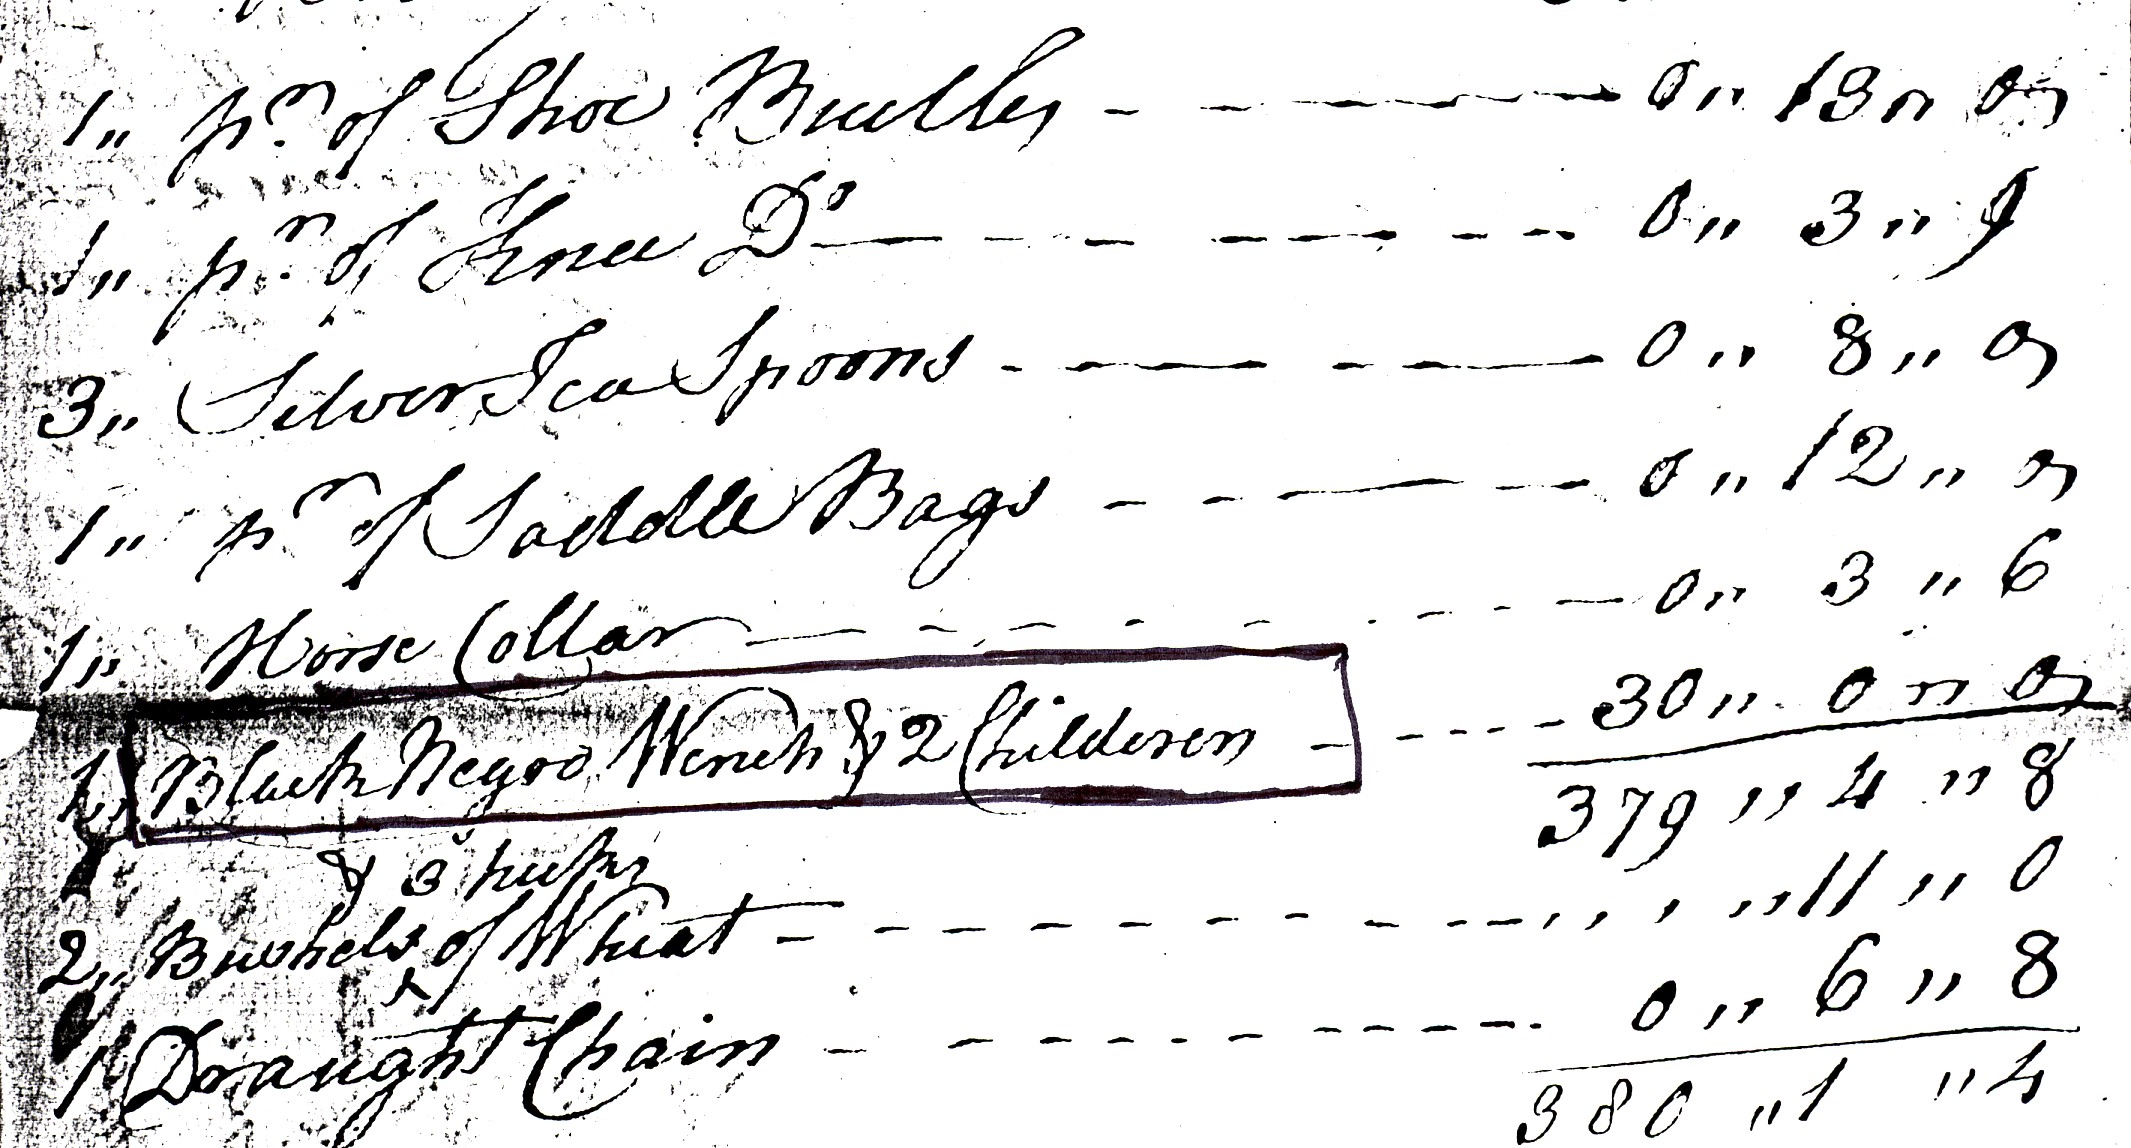 1,, pr. of Shoe Buckles - - - - 0,, 13,, 0
1,, pr. of Knee Do - - - - 0,, 3,, 9
3,, Silver Tea Spoons - - - - 0,, 8,, 0
1,, pr of Saddle Bags - - - - 0,, 12,, 0
1,, Horse Collar - - - - 0,, 3,, 6
1,, Black Negro Wench & 2 Children - - - - 30,, 0,, 0
379,, 4,, 8
& 3 pecks
2,, Bushels of Wheat - - - - ,, 11,, 0
1 Draught Chain - - - - 0,, 6,, 8
380,, 1,, 4